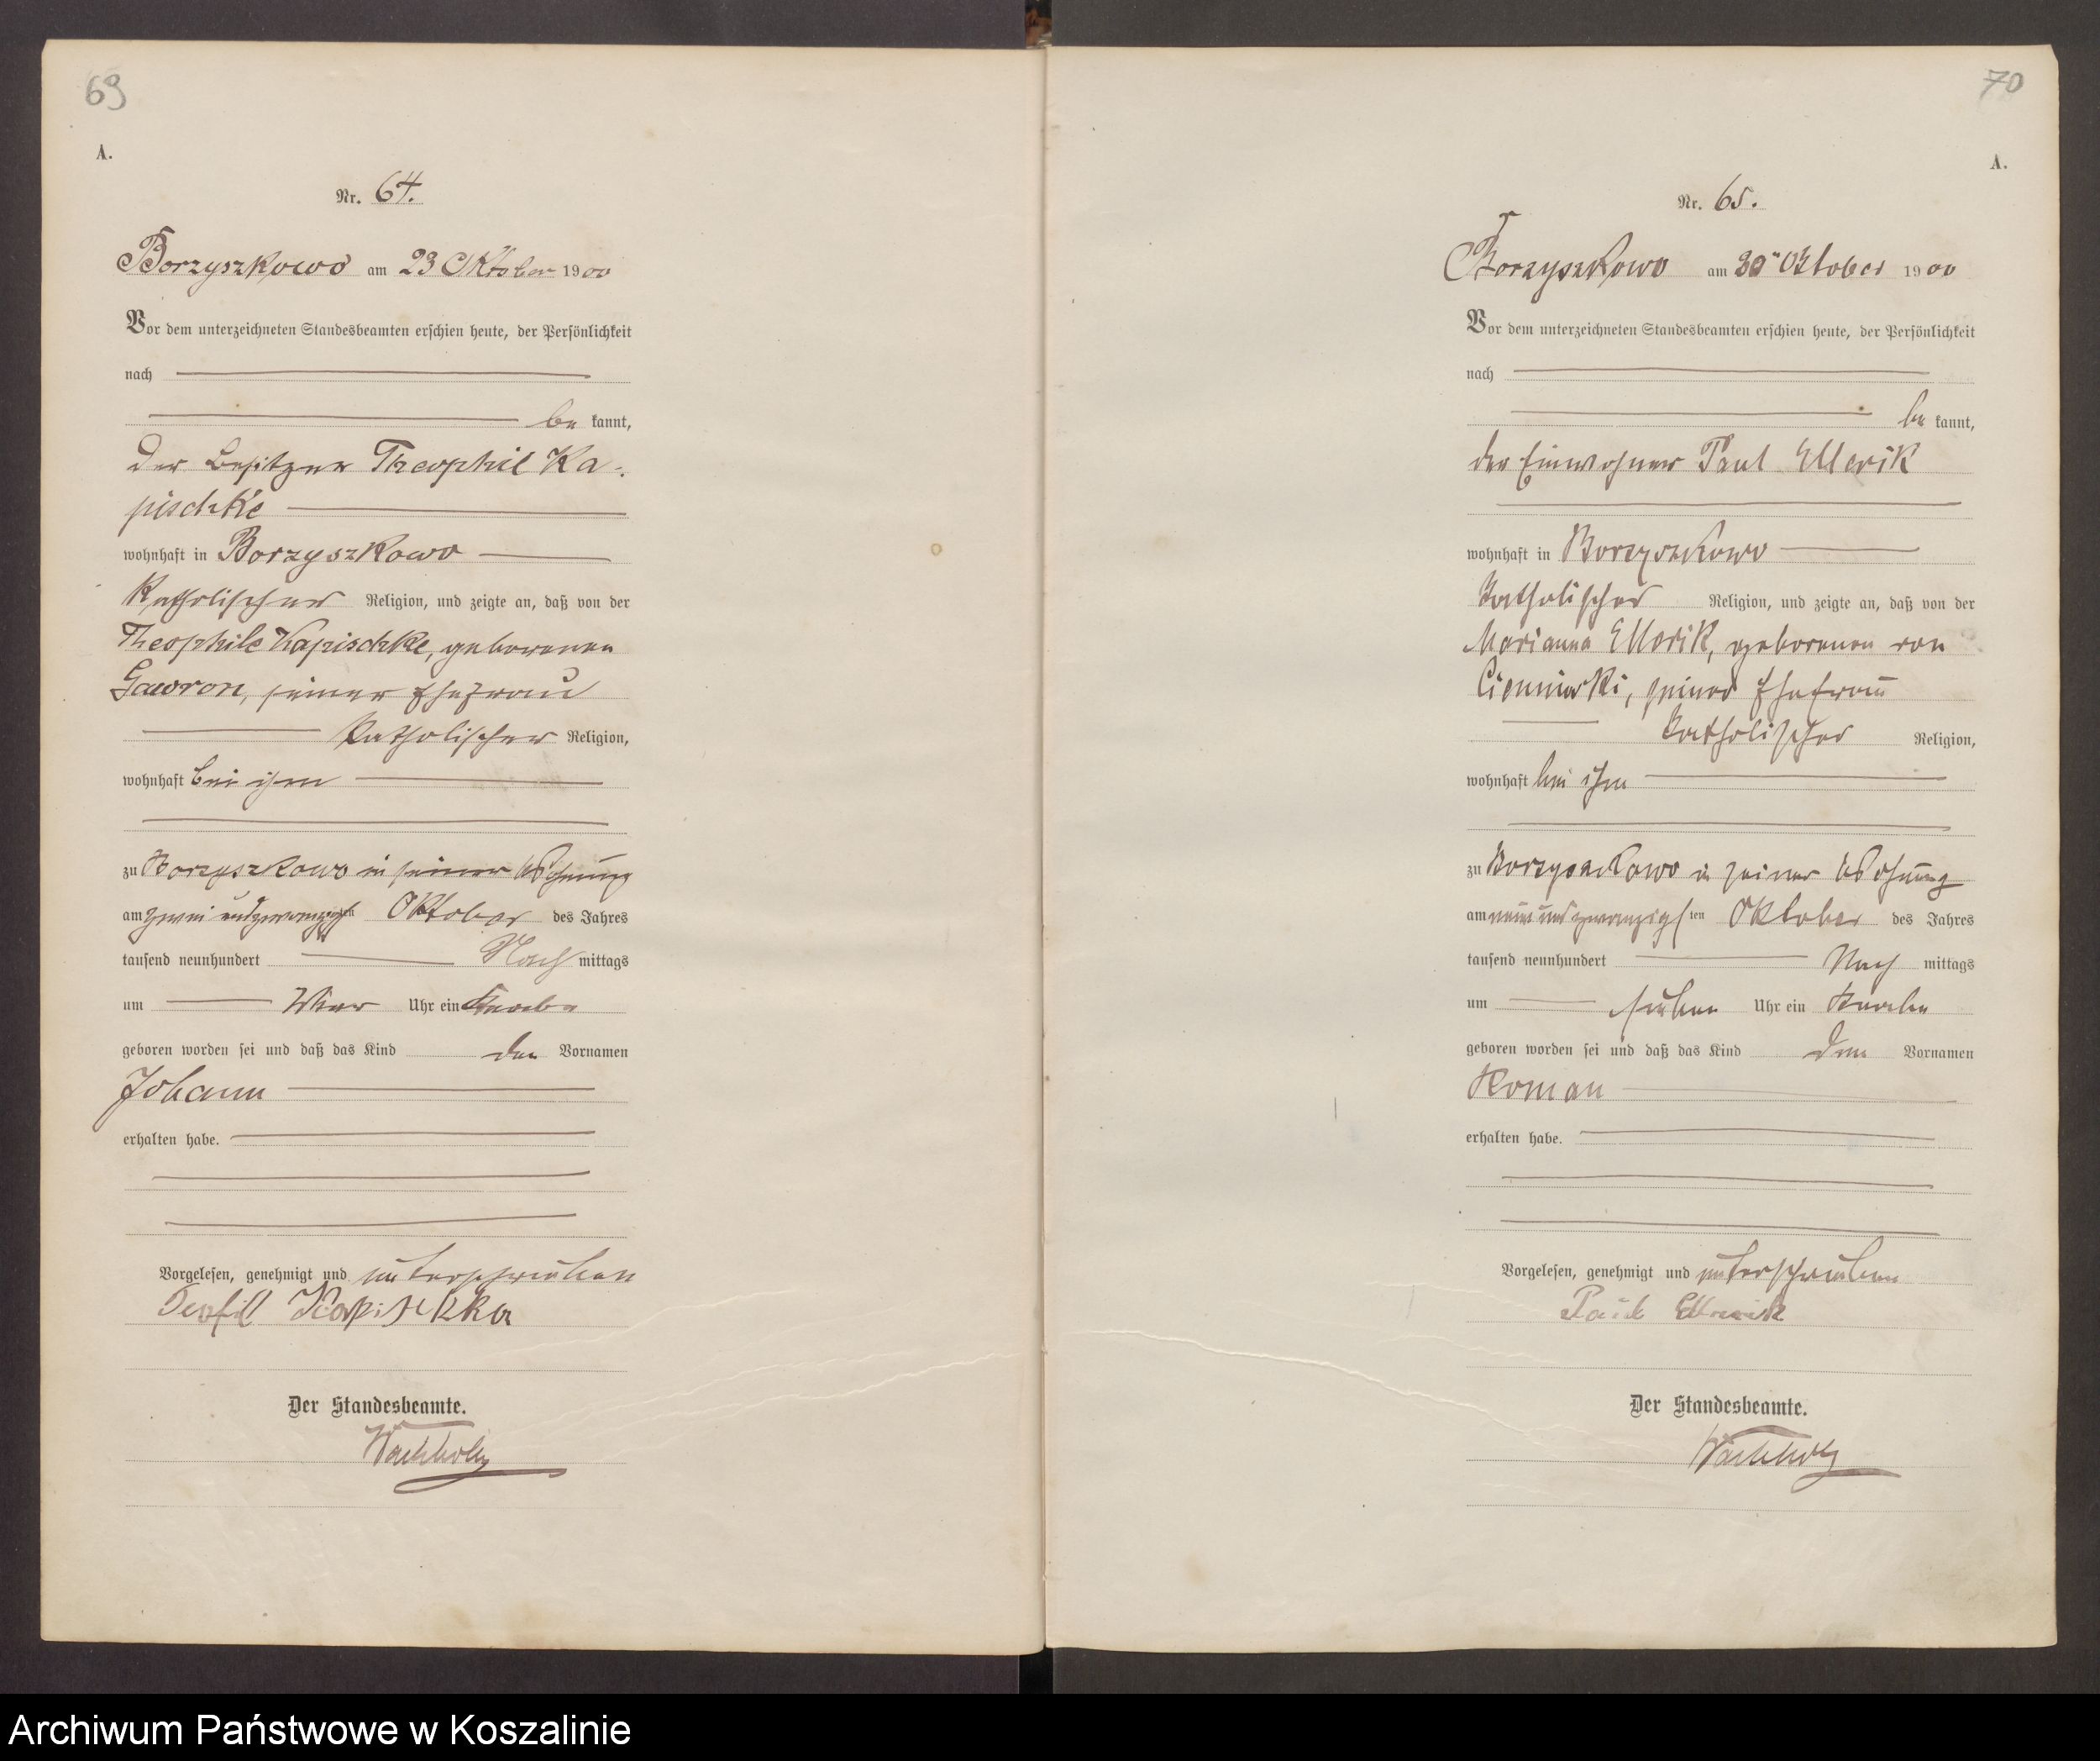 69
A.
Nr. 64.
Borzyszkowo am 23 Oktober 1900
Vor dem unterzeichneten Standesbeamten erschien heute, der Persönlichkeit
nach
be kannt,
der Besitzer Theophil Ka-
pischke
wohnhaft in Borzyszkowo
katholischer Religion, und zeigte an, daß von der
Theophile Kapischke, geborenen
Gawron, seiner Ehefrau
katholischer Religion,
wohnhaft bei ihm
zu Borzyszkowo in seiner Wohnung
am zwei und zwanzigsten Oktober des Jahres
tausend neunhundert Nach mittags
um Uhr ein Knabe
geboren worden sei und daß das Kind den Vornamen
Johann
erhalten habe.
Vorgelesen, genehmigt und unterschrieben
Der Standesbeamte.
70
A.
Nr. 65.
Borzyszkowo am 30ten Oktober 1900
Vor dem unterzeichneten Standesbeamten erschien heute, der Persönlichkeit
nach
be kannt,
der Einwohner Paul Ellerik
wohnhaft in Borzyszkowo
katholischer Religion, und zeigte an, daß von der
Marianna Ellerik, geborenen von
seiner Ehefrau
katholischer Religion,
wohnhaft bei ihm
zu Borzyszkowo in seiner Wohnung
am neun und zwanzigsten Oktober des Jahres
tausend neunhundert Nach mittags
um sieben Uhr ein Knabe
geboren worden sei und daß das Kind den Vornamen
Roman
erhalten habe.
Vorgelesen, genehmigt und unterschrieben
Der Standesbeamte.
Archiwum Państwowe w Koszalinie